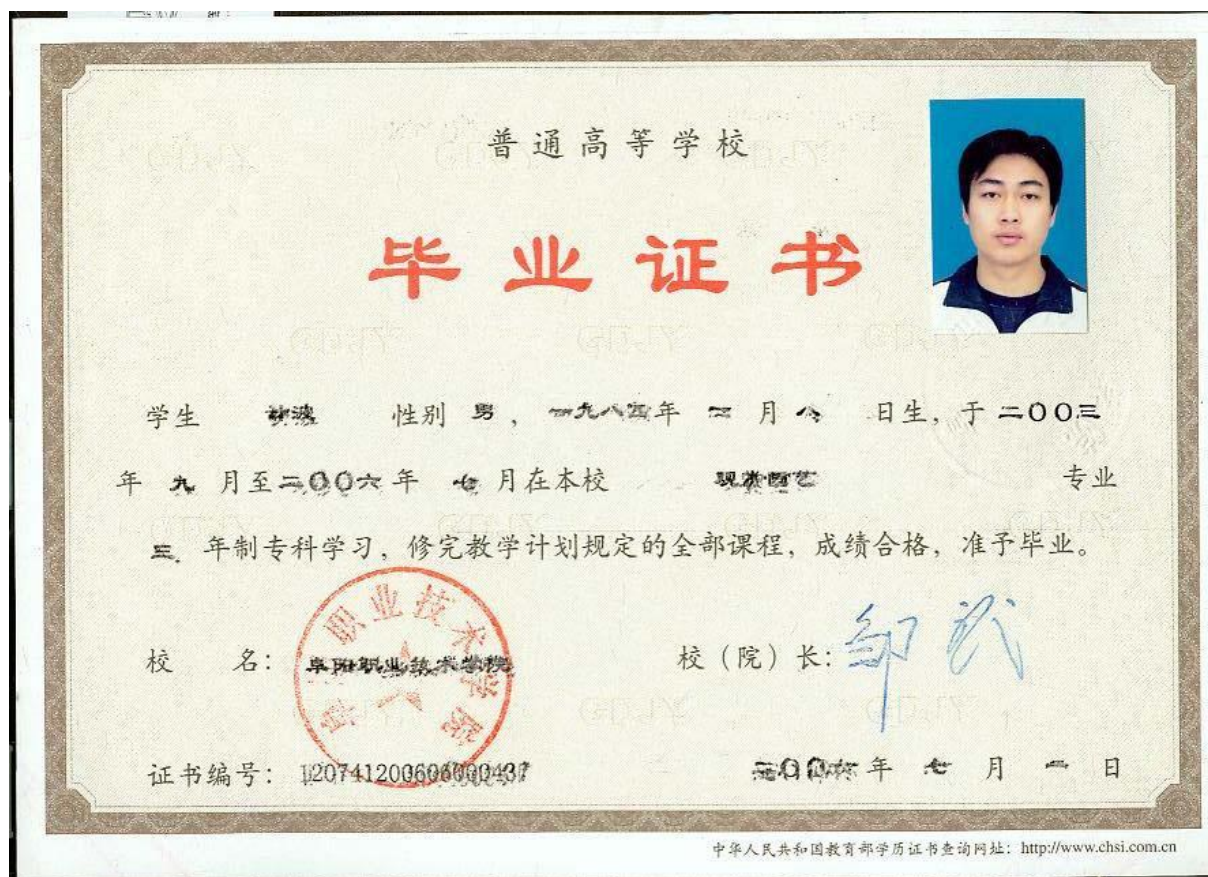 普通高等学校
毕业证书
学生 波 性别 男，一九八四年 月 日生，于 二00三
年 九 月至二00六年 七 月在本校 观赏园艺 专业
三 年制专科学习，修完教学计划规定的全部课程，成绩合格，准予毕业。
校 名：阜阳职业技术学院
职业技术学院
校（院）长：
证书编号：120741200606000437
二00六年 七 月 一 日
中华人民共和国教育部学历证书查询网址：http://www.chsi.com.cn